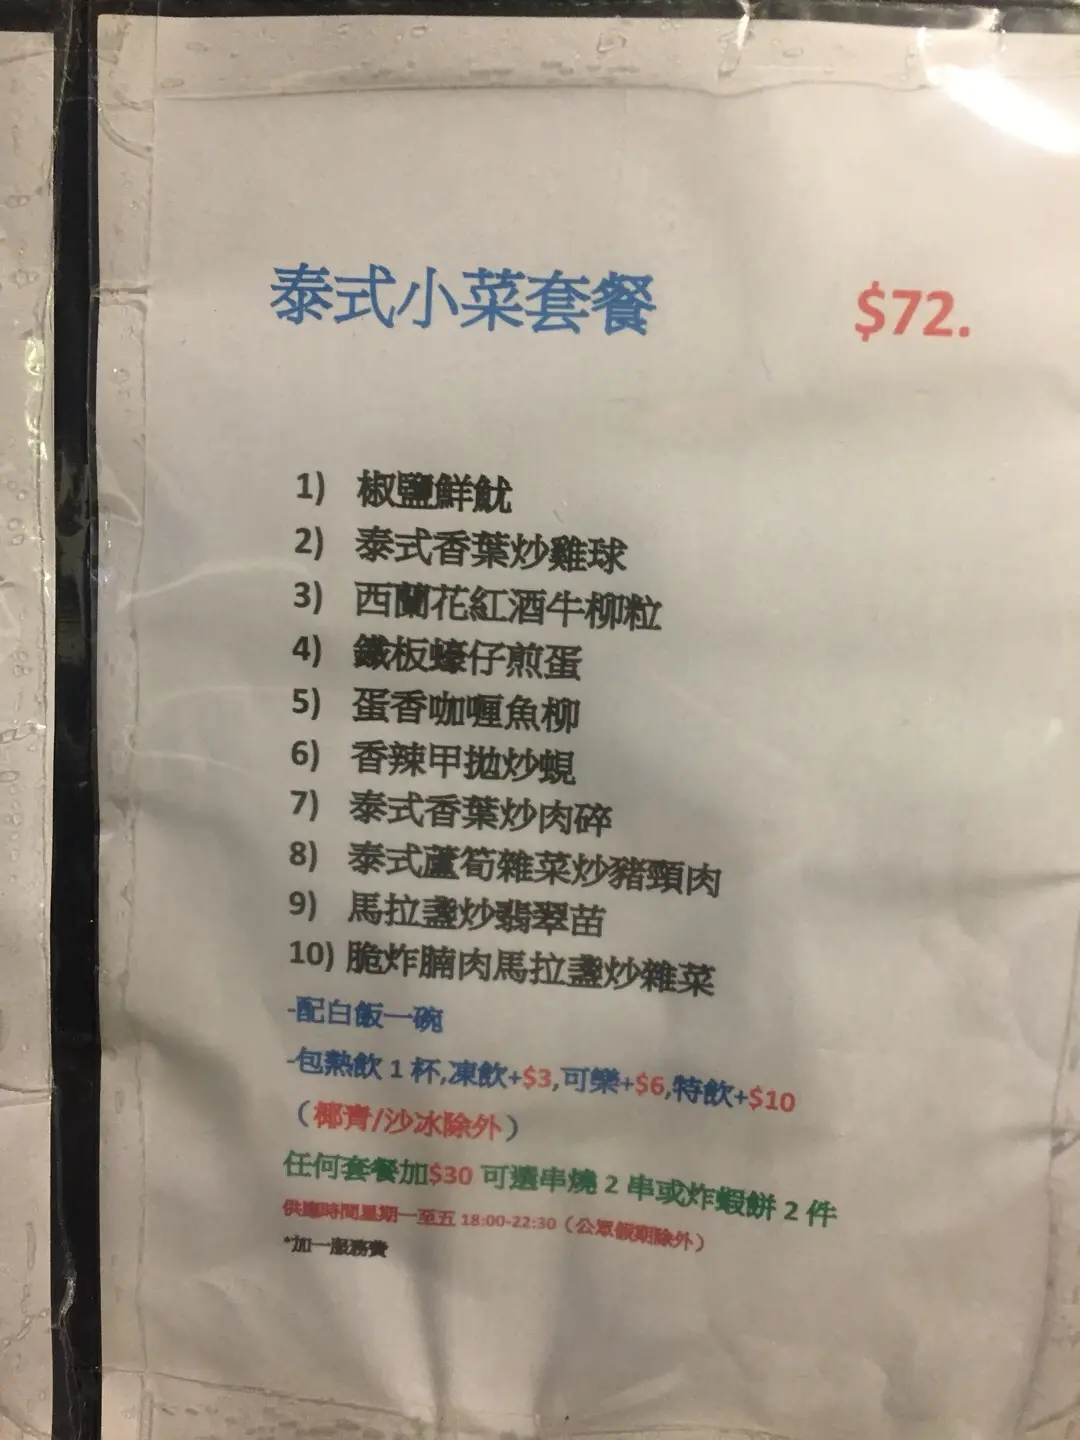 泰式小菜套餐 $72.
1) 椒鹽鮮魷
2) 泰式香葉炒雞球
3) 西蘭花紅酒牛柳粒
4) 鐵板蠔仔煎蛋
5) 蛋香咖喱魚柳
6) 香辣甲拋炒蜆
7) 泰式香葉炒肉碎
8) 泰式蘆筍雜菜炒豬頸肉
9) 馬拉盞炒翡翠苗
10) 脆炸腩肉馬拉盞炒雜菜
-配白飯一碗
-包熱飲 1 杯,凍飲+$3,可樂+$6,特飲+$10
（椰青/沙冰除外）
任何套餐加$30 可選串燒 2 串或炸蝦餅 2 件
供應時間星期一至五 18:00-22:30（公眾假期除外）
*加一服務費